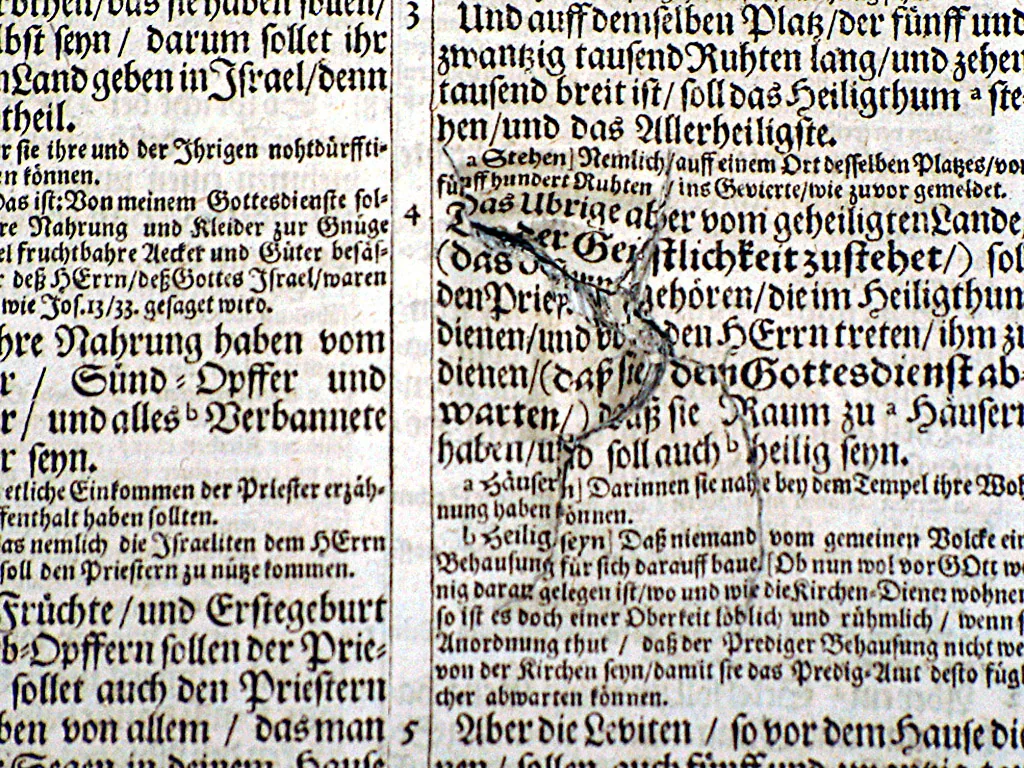 das sie haben sollen/
seyn / darum sollet ihr
Land geben in Israel/denn
theil.
sie ihre und der Ihrigen nohtdürffti-
können.
ist: Von meinem Gottesdienste sol-
Nahrung und Kleider zur Gnüge
fruchtbahre Aecker und Güter besäs-
deß HErrn/deß Gottes Israel/waren
wie Jos.13/33. gesaget wird.
Nahrung haben vom
/ Sünd-Opffer und
/ und alles b Verbannete
seyn.
etliche Einkommen der Priester erzäh-
haben sollten.
nemlich die Israeliten dem HErrn
soll den Priestern zu nütze kommen.
Früchte/und Erstegeburt
Opffern sollen der Prie-
sollet auch den Priestern
von allem / das man
Segen in deinem Hause
3 Und auff demselben Platz/der fünff und
zwantzig tausend Ruhten lang/und zehen
tausend breit ist/soll das Heiligthum a ste-
hen/und das Allerheiligste.
a Stehen] Nemlich/auff einem Ort desselben Platzes/von
fünff hundert Ruhten/ins Gevierte/wie zuvor gemeldet.
4 Das Ubrige aber vom geheiligten Lande/
(das der Geistlichkeit zustehet/) soll
den Priestern gehören/die im Heiligthum
dienen/und den HErrn treten/ihm zu
dienen/(daß sie dem Gottesdienst ab-
warten/) daß sie Raum zu a Häusern
haben/und soll auch b heilig seyn.
a Häusern] Darinnen sie nahe bey dem Tempel ihre Woh-
nung haben können.
b Heilig seyn] Daß niemand vom gemeinen Volcke
Behausung für sich darauff baue. [Ob nun wol vor GOtt
nig daran gelegen ist/wo und wie die Kirchen-Diener wohnen
so ist es doch einer Oberkeit löblich und rühmlich / wenn
Anordnung thut / daß der Prediger Behausung nicht
von der Kirchen seyn/damit sie das Predig-Amt desto füg-
cher abwarten können.
5 Aber die Leviten / so vor dem Hause
sollen auch fünff und